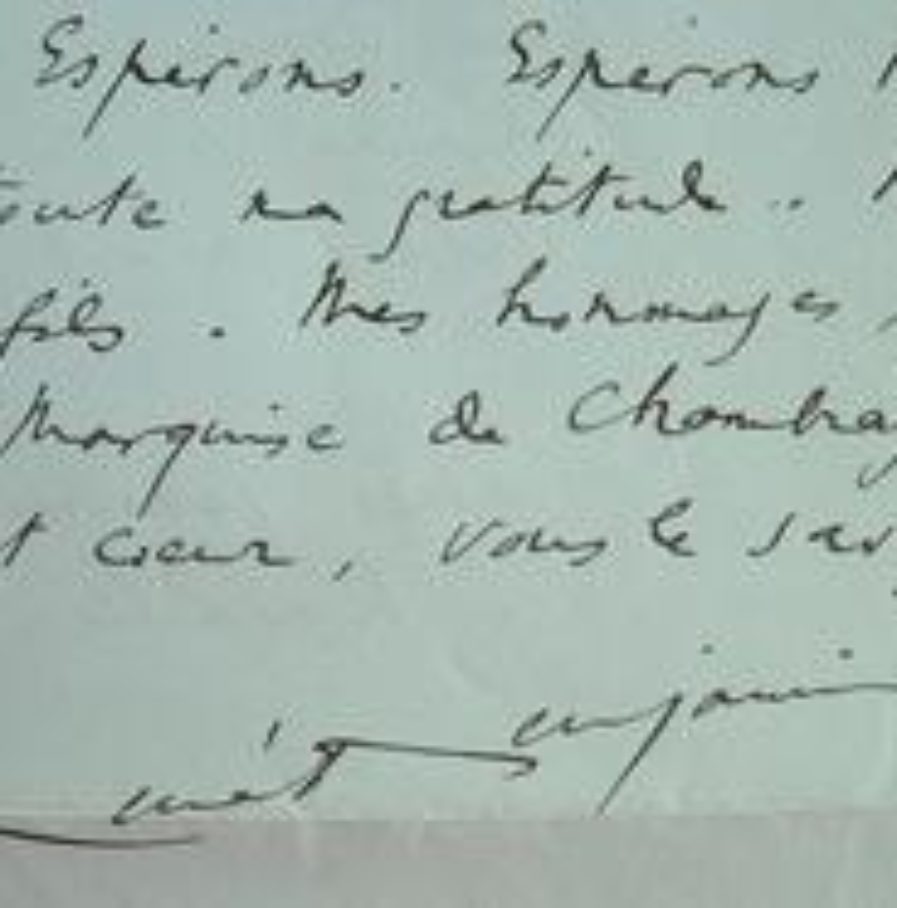 Espérons. Espérons
toute ma gratitude..
fils. Mes hommages
Marquise de Chambray
t cœur, vous le sav